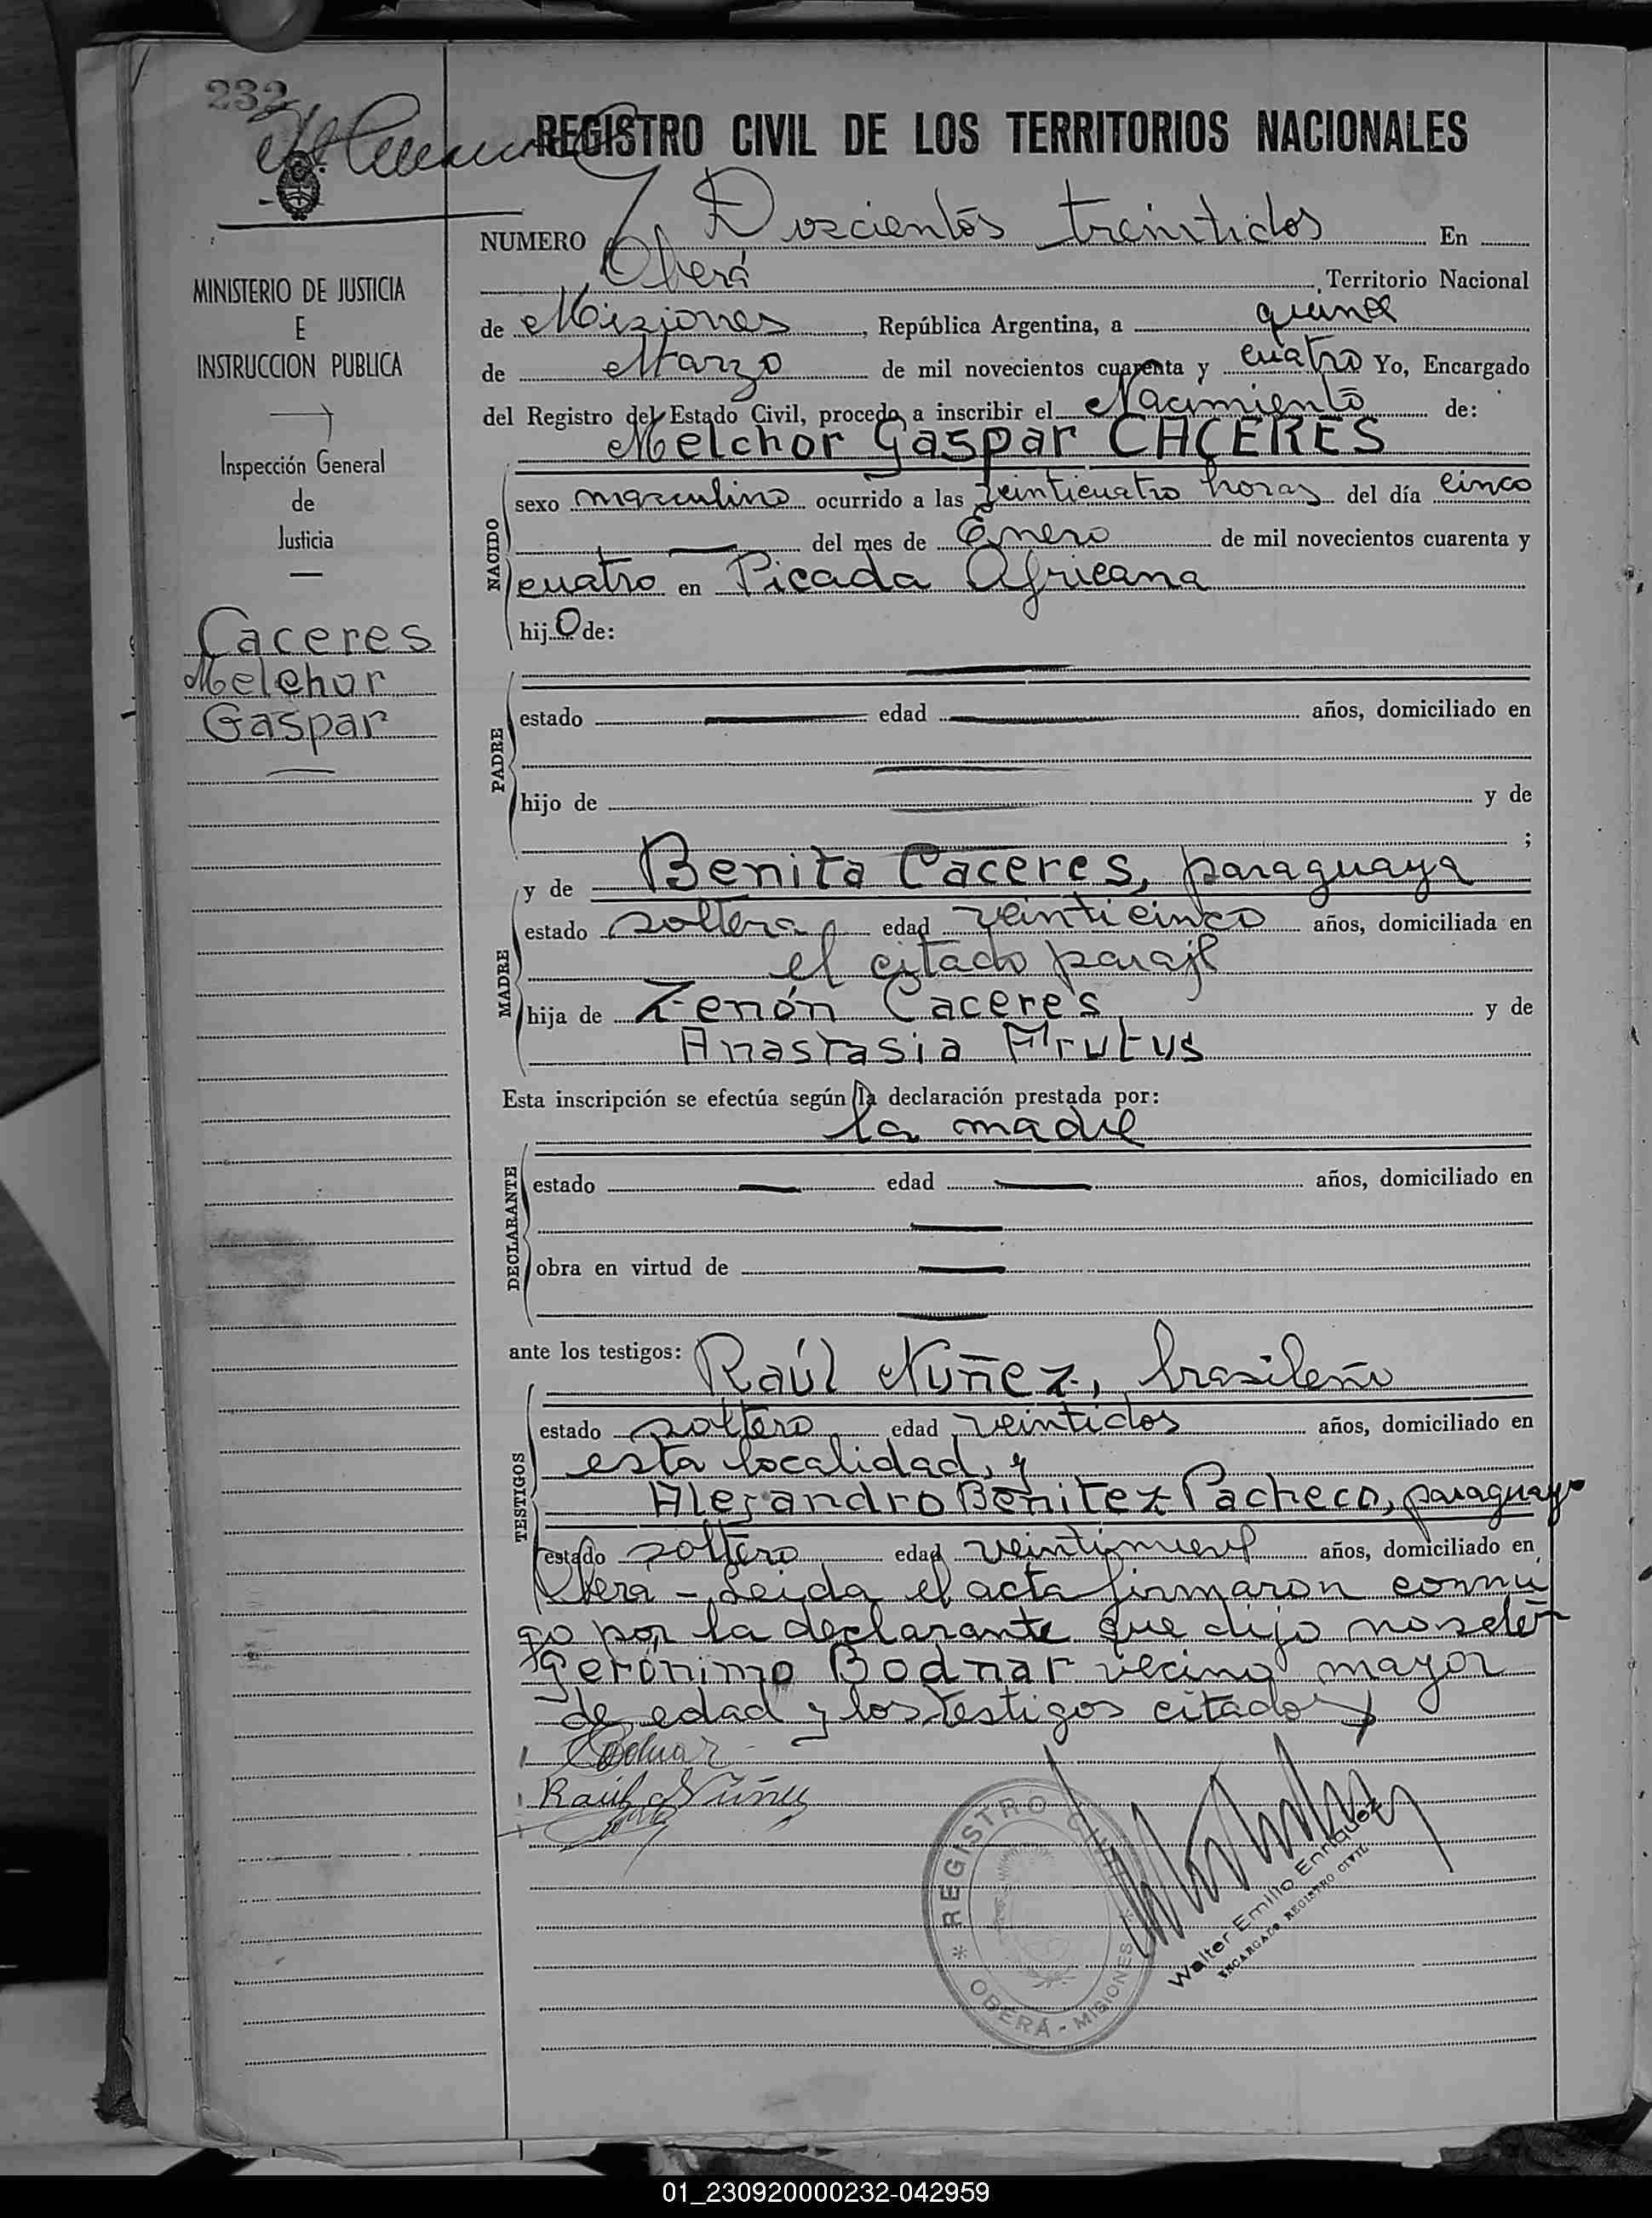 232
REGISTRO CIVIL DE LOS TERRITORIOS NACIONALES
NUMERO Doscientos treintidos En
Oberá, Territorio Nacional
de Misiones, República Argentina, a quince
de Marzo de mil novecientos cuarenta y cuatro Yo, Encargado
del Registro del Estado Civil, procedo a inscribir el Nacimiento de:
Melchor Gaspar CACERES
NACIDO
sexo masculino ocurrido a las veinticuatro horas del día cinco
del mes de Enero de mil novecientos cuarenta y
cuatro en Picada Africana
hijo de:
PADRE
estado edad años, domiciliado en
hijo de y de
;
y de Benita Caceres, paraguaya
MADRE
estado soltera edad veinticinco años, domiciliada en
el citado paraje
hija de Zenón Caceres y de
Anastasia
Esta inscripción se efectúa según la declaración prestada por:
la madre
DECLARANTE
estado edad años, domiciliado en
obra en virtud de
ante los testigos: Raúl Nuñez, brasileño
TESTIGOS
estado soltero edad veintidos años, domiciliado en
esta localidad, y
Alejandro Benitez Pacheco, paraguayo
estado soltero edad veintinueve años, domiciliado en
Oberá - Leida el acta firmaron conmi
go por la declarante que dijo no saber
Gerónimo Bodnar vecino mayor
de edad y los testigos citados
Bodnar
Raúl Núñez
MINISTERIO DE JUSTICIA
E
INSTRUCCION PUBLICA
Inspección General
de
Justicia
Caceres
Melchor
Gaspar
REGISTRO CIVIL
OBERÁ - MISIONES
Walter Emilio Enriquez
ENCARGADO REGISTRO CIVIL
01_230920000232-042959